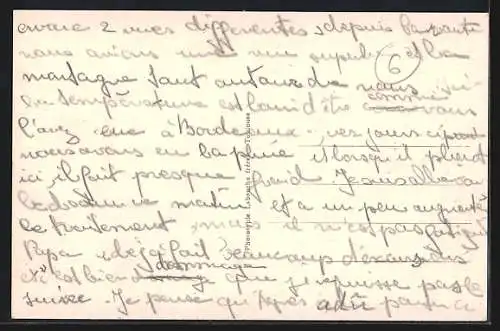 encore 2 vues différentes, depuis la route
nous avions une vue superbe et la
montagne tout autour de nous, ici
la température est loin d'être comme vous
l'avez eue à Bordeaux. ces jours ci
nous avons eu la pluie et lorsqu'il pleut
ici, il fait presque froid. Je suis allée
le docteur ce matin et a un peu augmenté
le traitement, mais il n'est pas fatigué
Papa a déjà fait beaucoup d'excursions
et c'est bien dommage que je ne puisse pas le
suivre. Je pense qu'après a dû
6
Phototypie Labouche frères, Toulouse